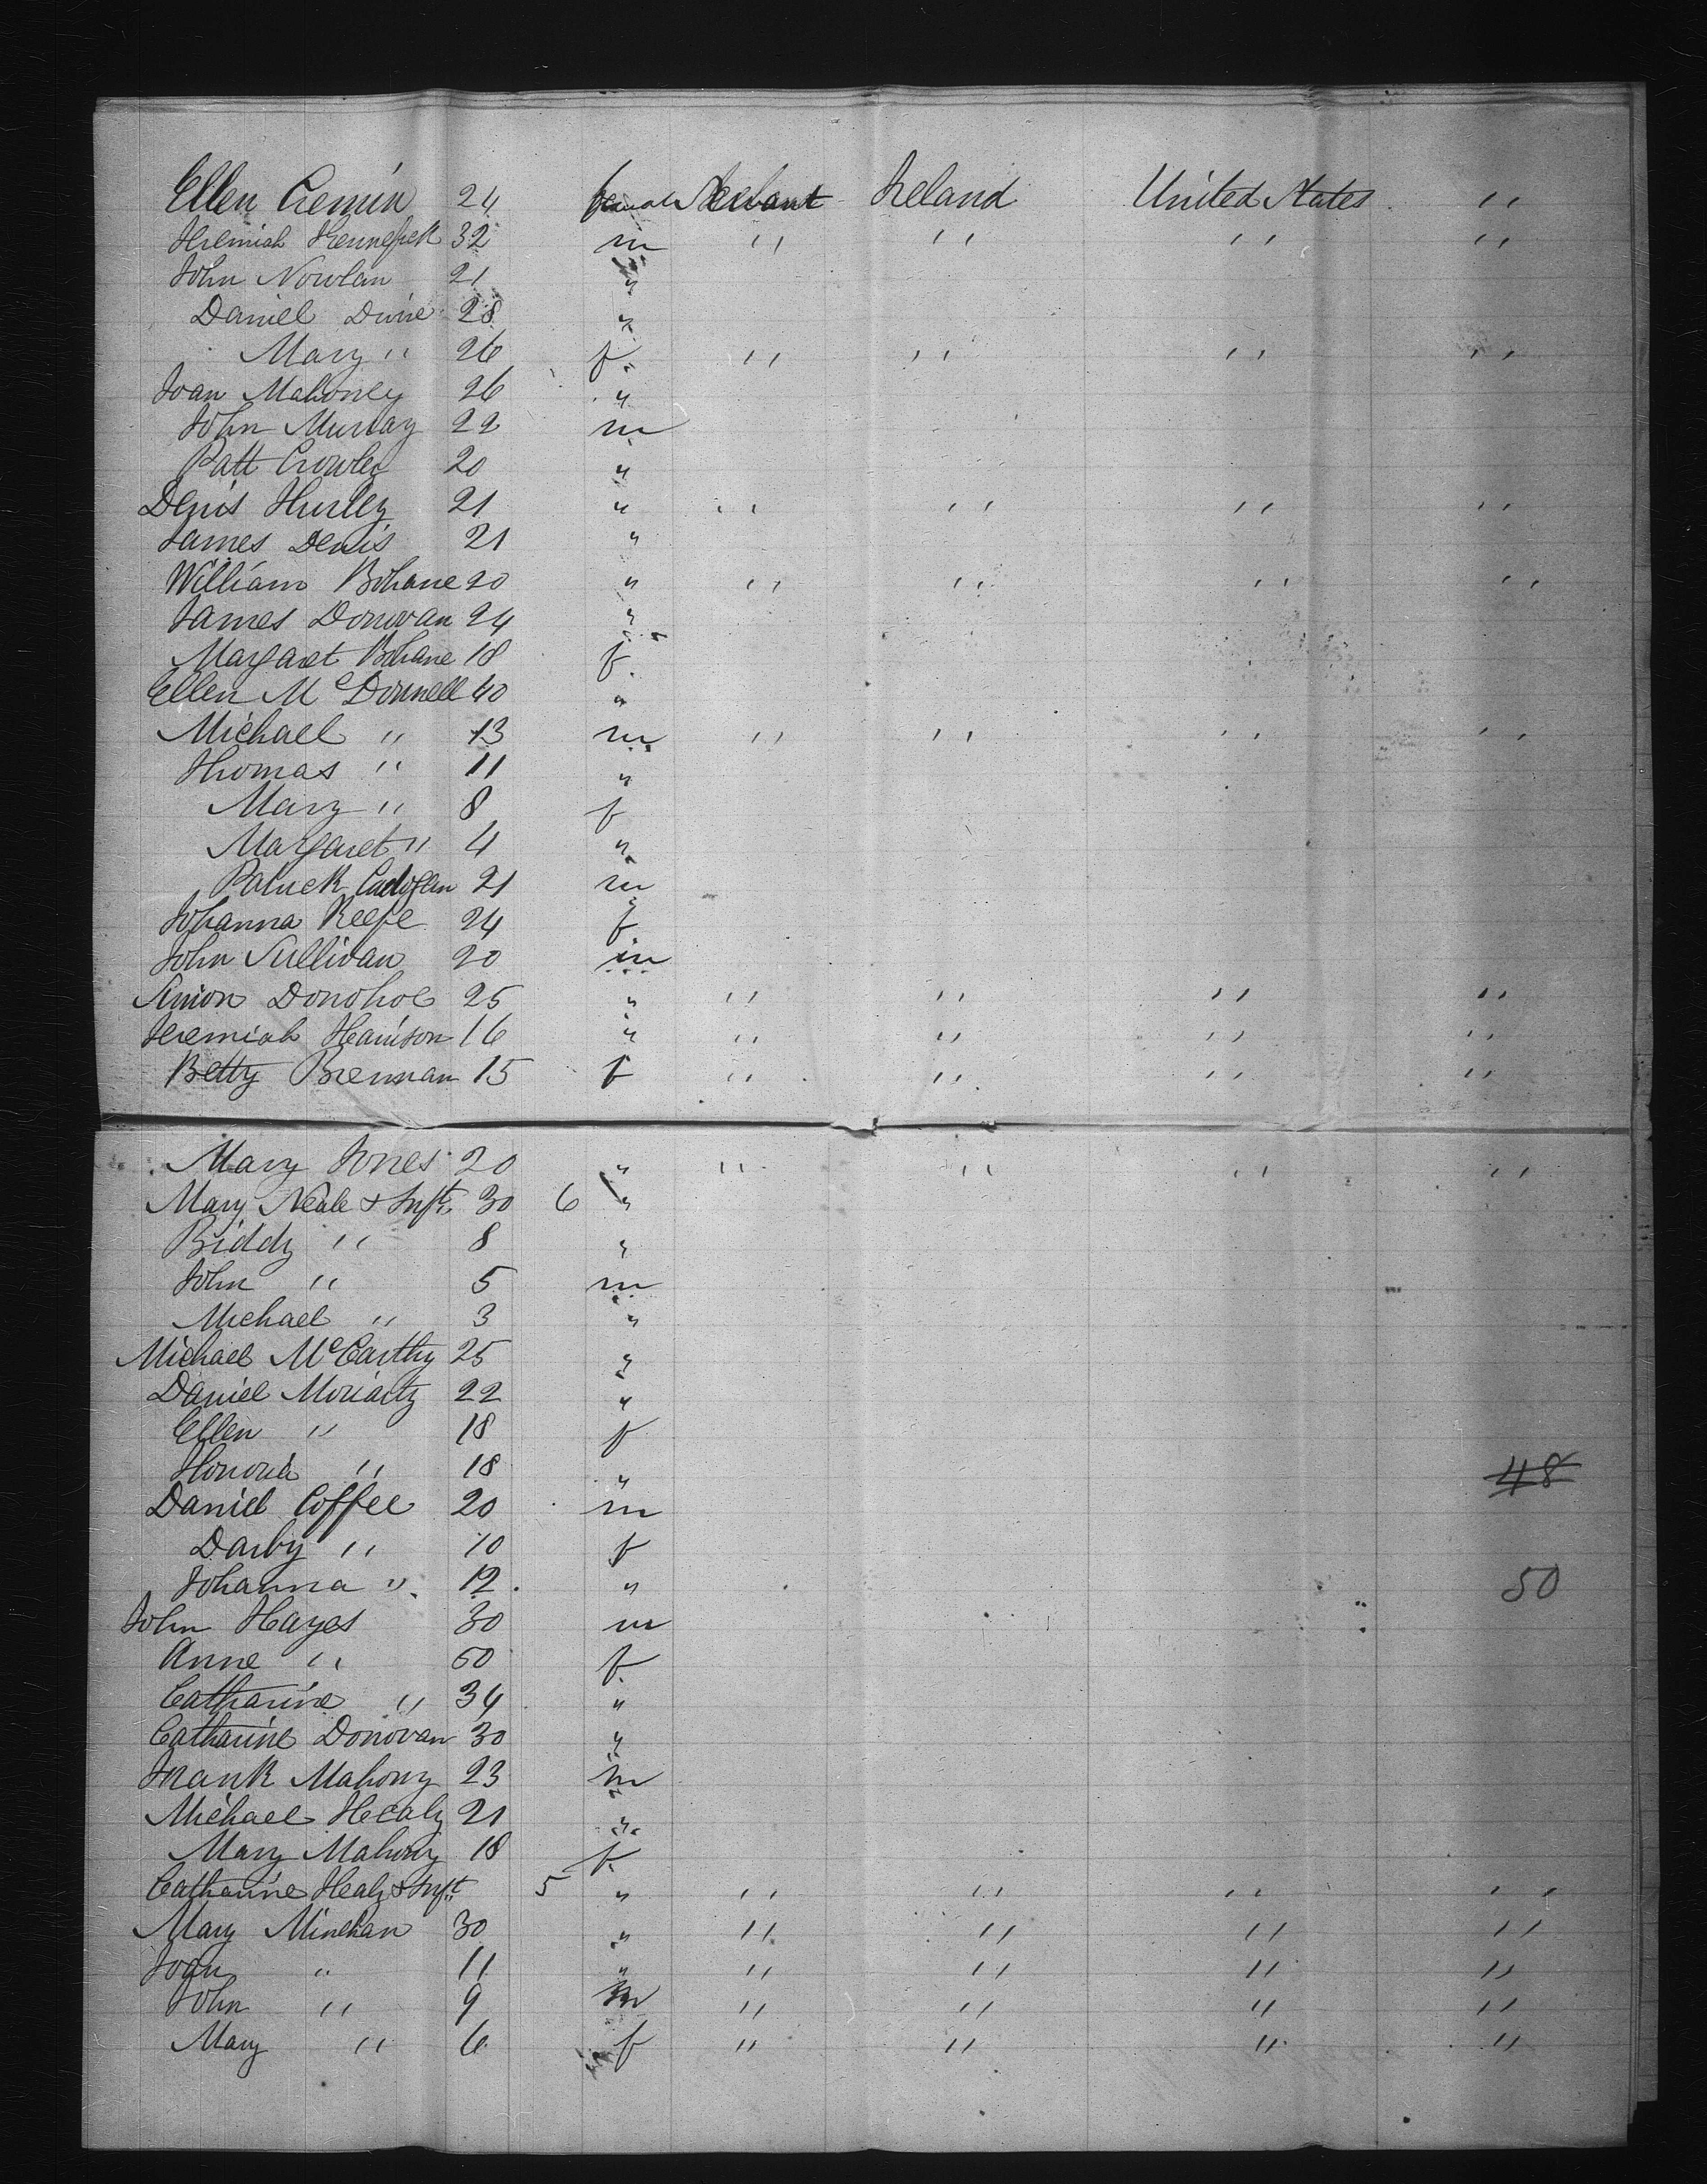 Ellen Cremin 24 female Servant Ireland United States "
Jeremiah Hennefick 32 m " " " "
John Nowlan 21 "
Daniel Divine 28 "
Mary " 26 f " " " "
Joan Mahoney 26 "
John Murray 22 m
Patt Crowley 20 "
Denis Hurley 21 " " " " "
James Denis 21 "
William Bohane 20 " " " " "
James Donovan 24 "
Margaret Bohane 18 f
Ellen McDonnell 40 "
Michael " 13 m " " " "
Thomas " 11 "
Mary " 8 f
Margaret " 4 "
Patrick Cadogan 21 m
Johanna Keefe 24 f
John Sullivan 20 m
Simon Donohoe 25 " " " " "
Jeremiah Harrison 16 " " " " "
Betty Brennan 15 f " " " "
Mary Jones 20 " " " " "
Mary Neale & Inft. 30 6 "
Biddy " 8 "
John " 5 m
Michael " 3 "
Michael McCarthy 25 "
Daniel Moriarty 22 "
Ellen " 18 f
Honoria " 18 " 48
Daniel Coffee 20 m
Darby " 10 f
Johanna " 12 " 50
John Hayes 30 m
Anne " 50 f
Catharine " 34 "
Catharine Donovan 30 "
Frank Mahony 23 m
Michael Healy 21 "
Mary Mahony 18 f
Catharine Healy & Inft 5 " " " " "
Mary Minehan 30 " " " " "
Joan " 11 " " " " "
John " 9 m " " " "
Mary " 6 f " " " "